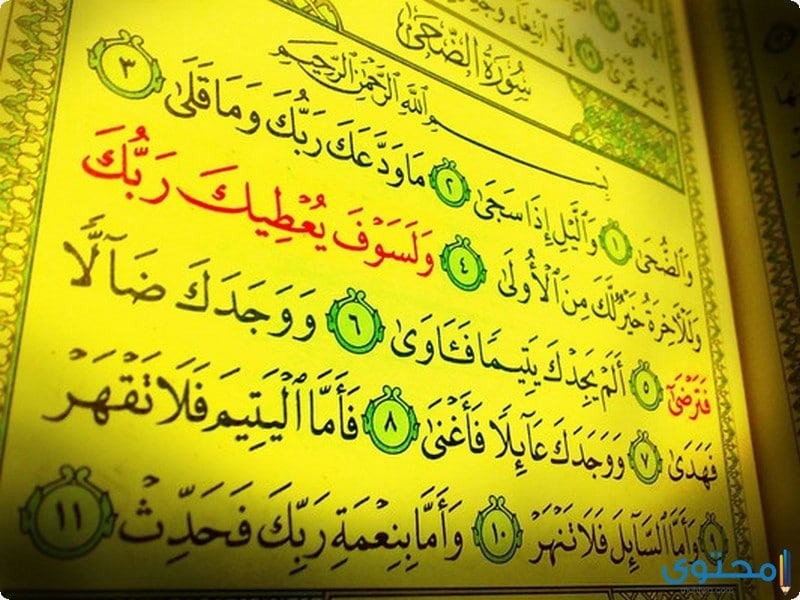 سُورَةُ الضُّحَىٰ
بِسْمِ ٱللَّهِ ٱلرَّحْمَٰنِ ٱلرَّحِيمِ
وَٱلضُّحَىٰ ١ وَٱلَّيْلِ إِذَا سَجَىٰ ٢ مَا وَدَّعَكَ رَبُّكَ وَمَا قَلَىٰ ٣
وَلَلْـَٔاخِرَةُ خَيْرٌ لَّكَ مِنَ ٱلْأُولَىٰ ٤ وَلَسَوْفَ يُعْطِيكَ رَبُّكَ
فَتَرْضَىٰٓ ٥ أَلَمْ يَجِدْكَ يَتِيمًا فَـَٔاوَىٰ ٦ وَوَجَدَكَ ضَآلًّا
فَهَدَىٰ ٧ وَوَجَدَكَ عَآئِلًا فَأَغْنَىٰ ٨ فَأَمَّا ٱلْيَتِيمَ فَلَا تَقْهَرْ
٩ وَأَمَّا ٱلسَّآئِلَ فَلَا تَنْهَرْ ١٠ وَأَمَّا بِنِعْمَةِ رَبِّكَ فَحَدِّثْ ١١
محتوى